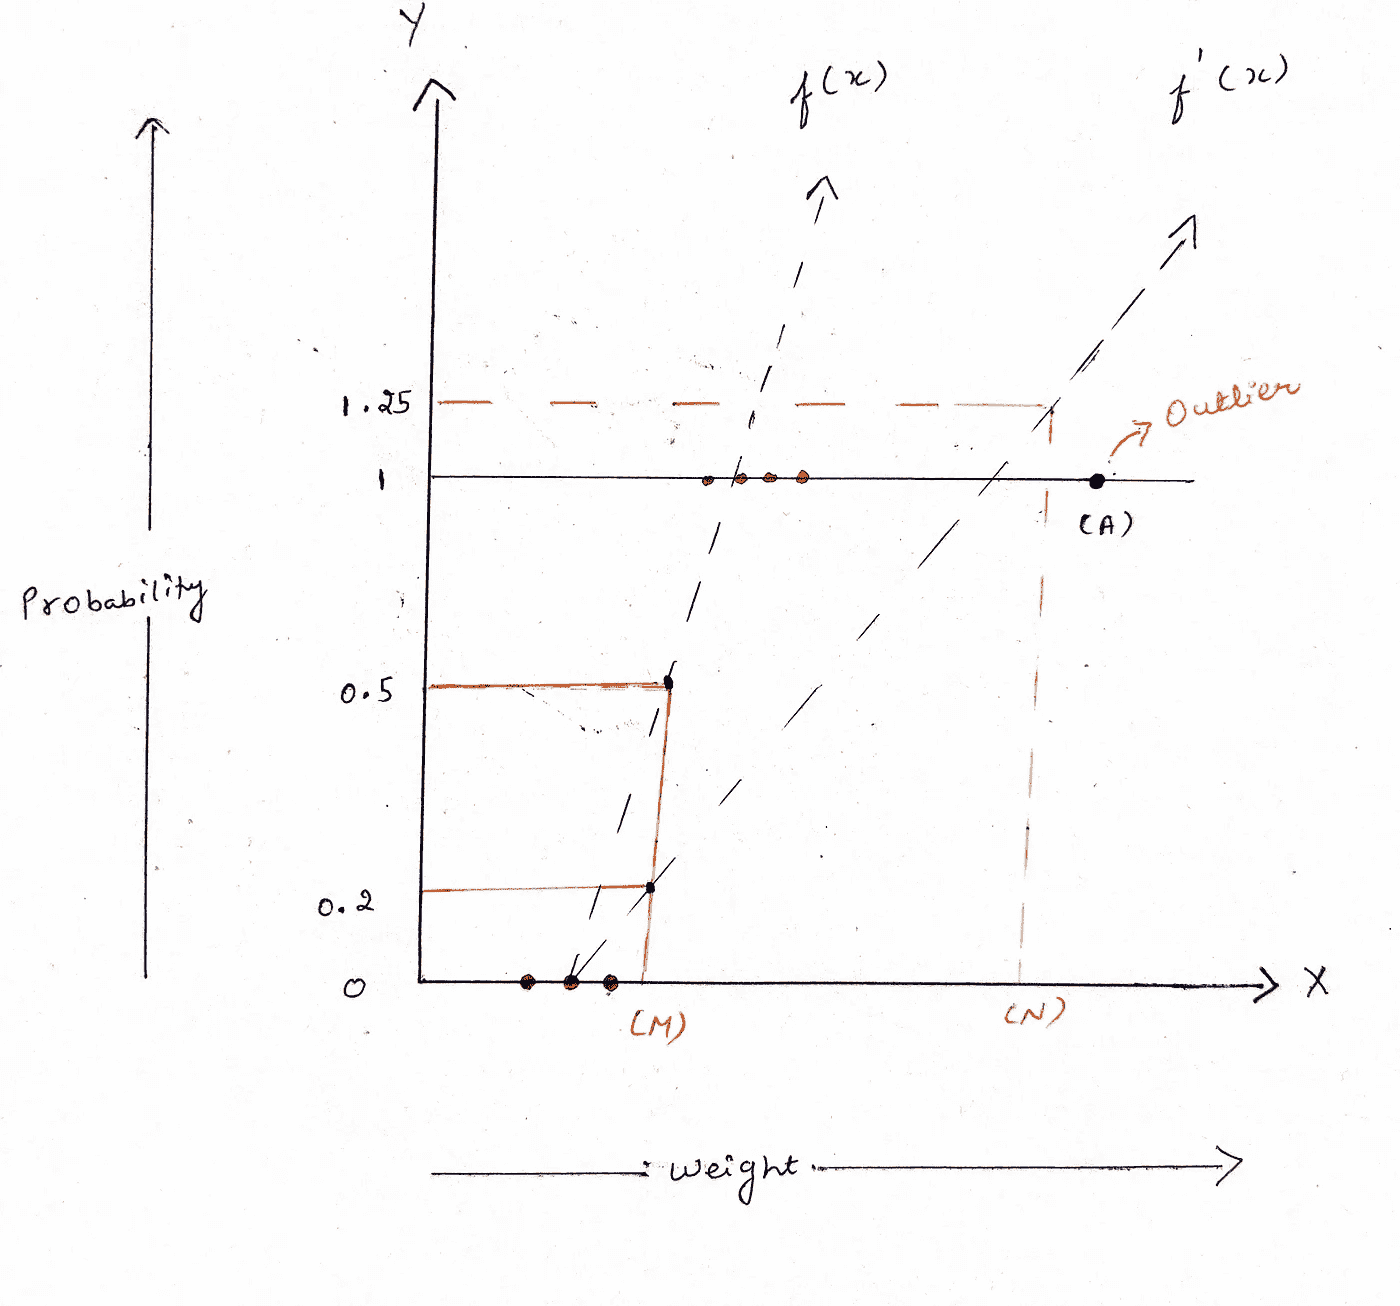 Y
f(x)
f'(x)
1.25
Outlier
1
(A)
Probability
0.5
0.2
0
X
(M)
(N)
Weight